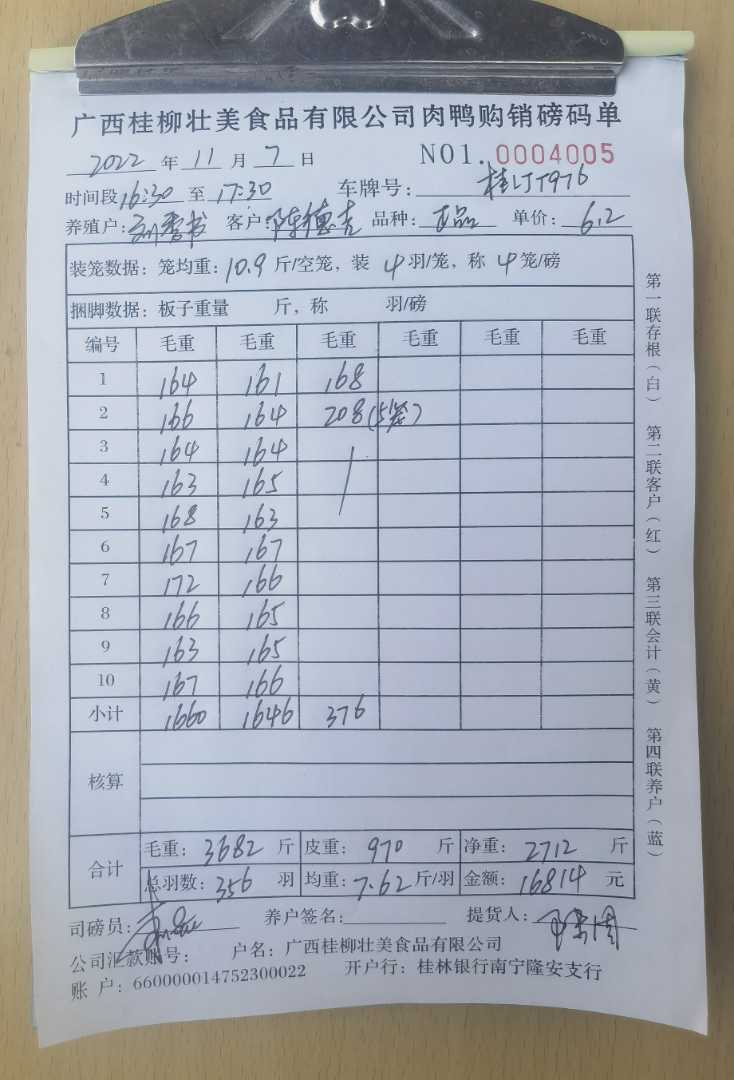 广西桂柳壮美食品有限公司肉鸭购销磅码单
2022 年 11 月 7 日 NO1. 0004005
时间段 16:30 至 17:30 车牌号: 桂LJT976
养殖户: 客户: 陈德吉 品种: 正品 单价: 6.2
装笼数据: 笼均重: 10.9 斤/空笼, 装 4 羽/笼, 称 4 笼/磅
捆脚数据: 板子重量 斤, 称 羽/磅
编号 毛重 毛重 毛重 毛重 毛重 毛重
1 164 161 168
2 166 164 208(5笼)
3 164 164
4 163 165
5 168 163
6 167 167
7 172 166
8 166 165
9 163 165
10 167 166
小计 1660 1646 376
核算
合计 毛重: 3682 斤 皮重: 970 斤 净重: 2712 斤
总羽数: 356 羽 均重: 7.62 斤/羽 金额: 16814 元
司磅员: 养户签名: 提货人:
公司汇款账号: 户名: 广西桂柳壮美食品有限公司
账 户: 660000014752300022 开户行: 桂林银行南宁隆安支行
第一联存根(白) 第二联客户(红) 第三联会计(黄) 第四联养户(蓝)